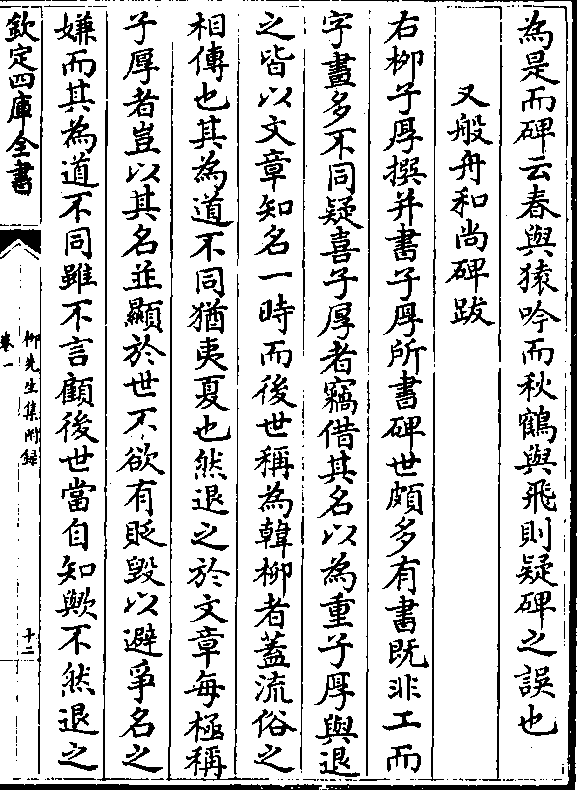 為是而碑云春與猿吟而秋鶴與飛則疑碑之誤也
又般舟和尚碑跋
右柳子厚撰并書子厚所書碑世頗多有書既非工而
字畫多不同疑喜子厚者竊借其名以為重子厚與退
之皆以文章知名一時而後世稱為韓柳者蓋流俗之
相傳也其為道不同猶夷夏也然退之於文章每極稱
子厚者豈以其名並顯於世不欲有貶毀以避爭名之
嫌而其為道不同雖不言顧後世當自知歟不然退之
欽定四庫全書
柳先生集附録
卷一
十二